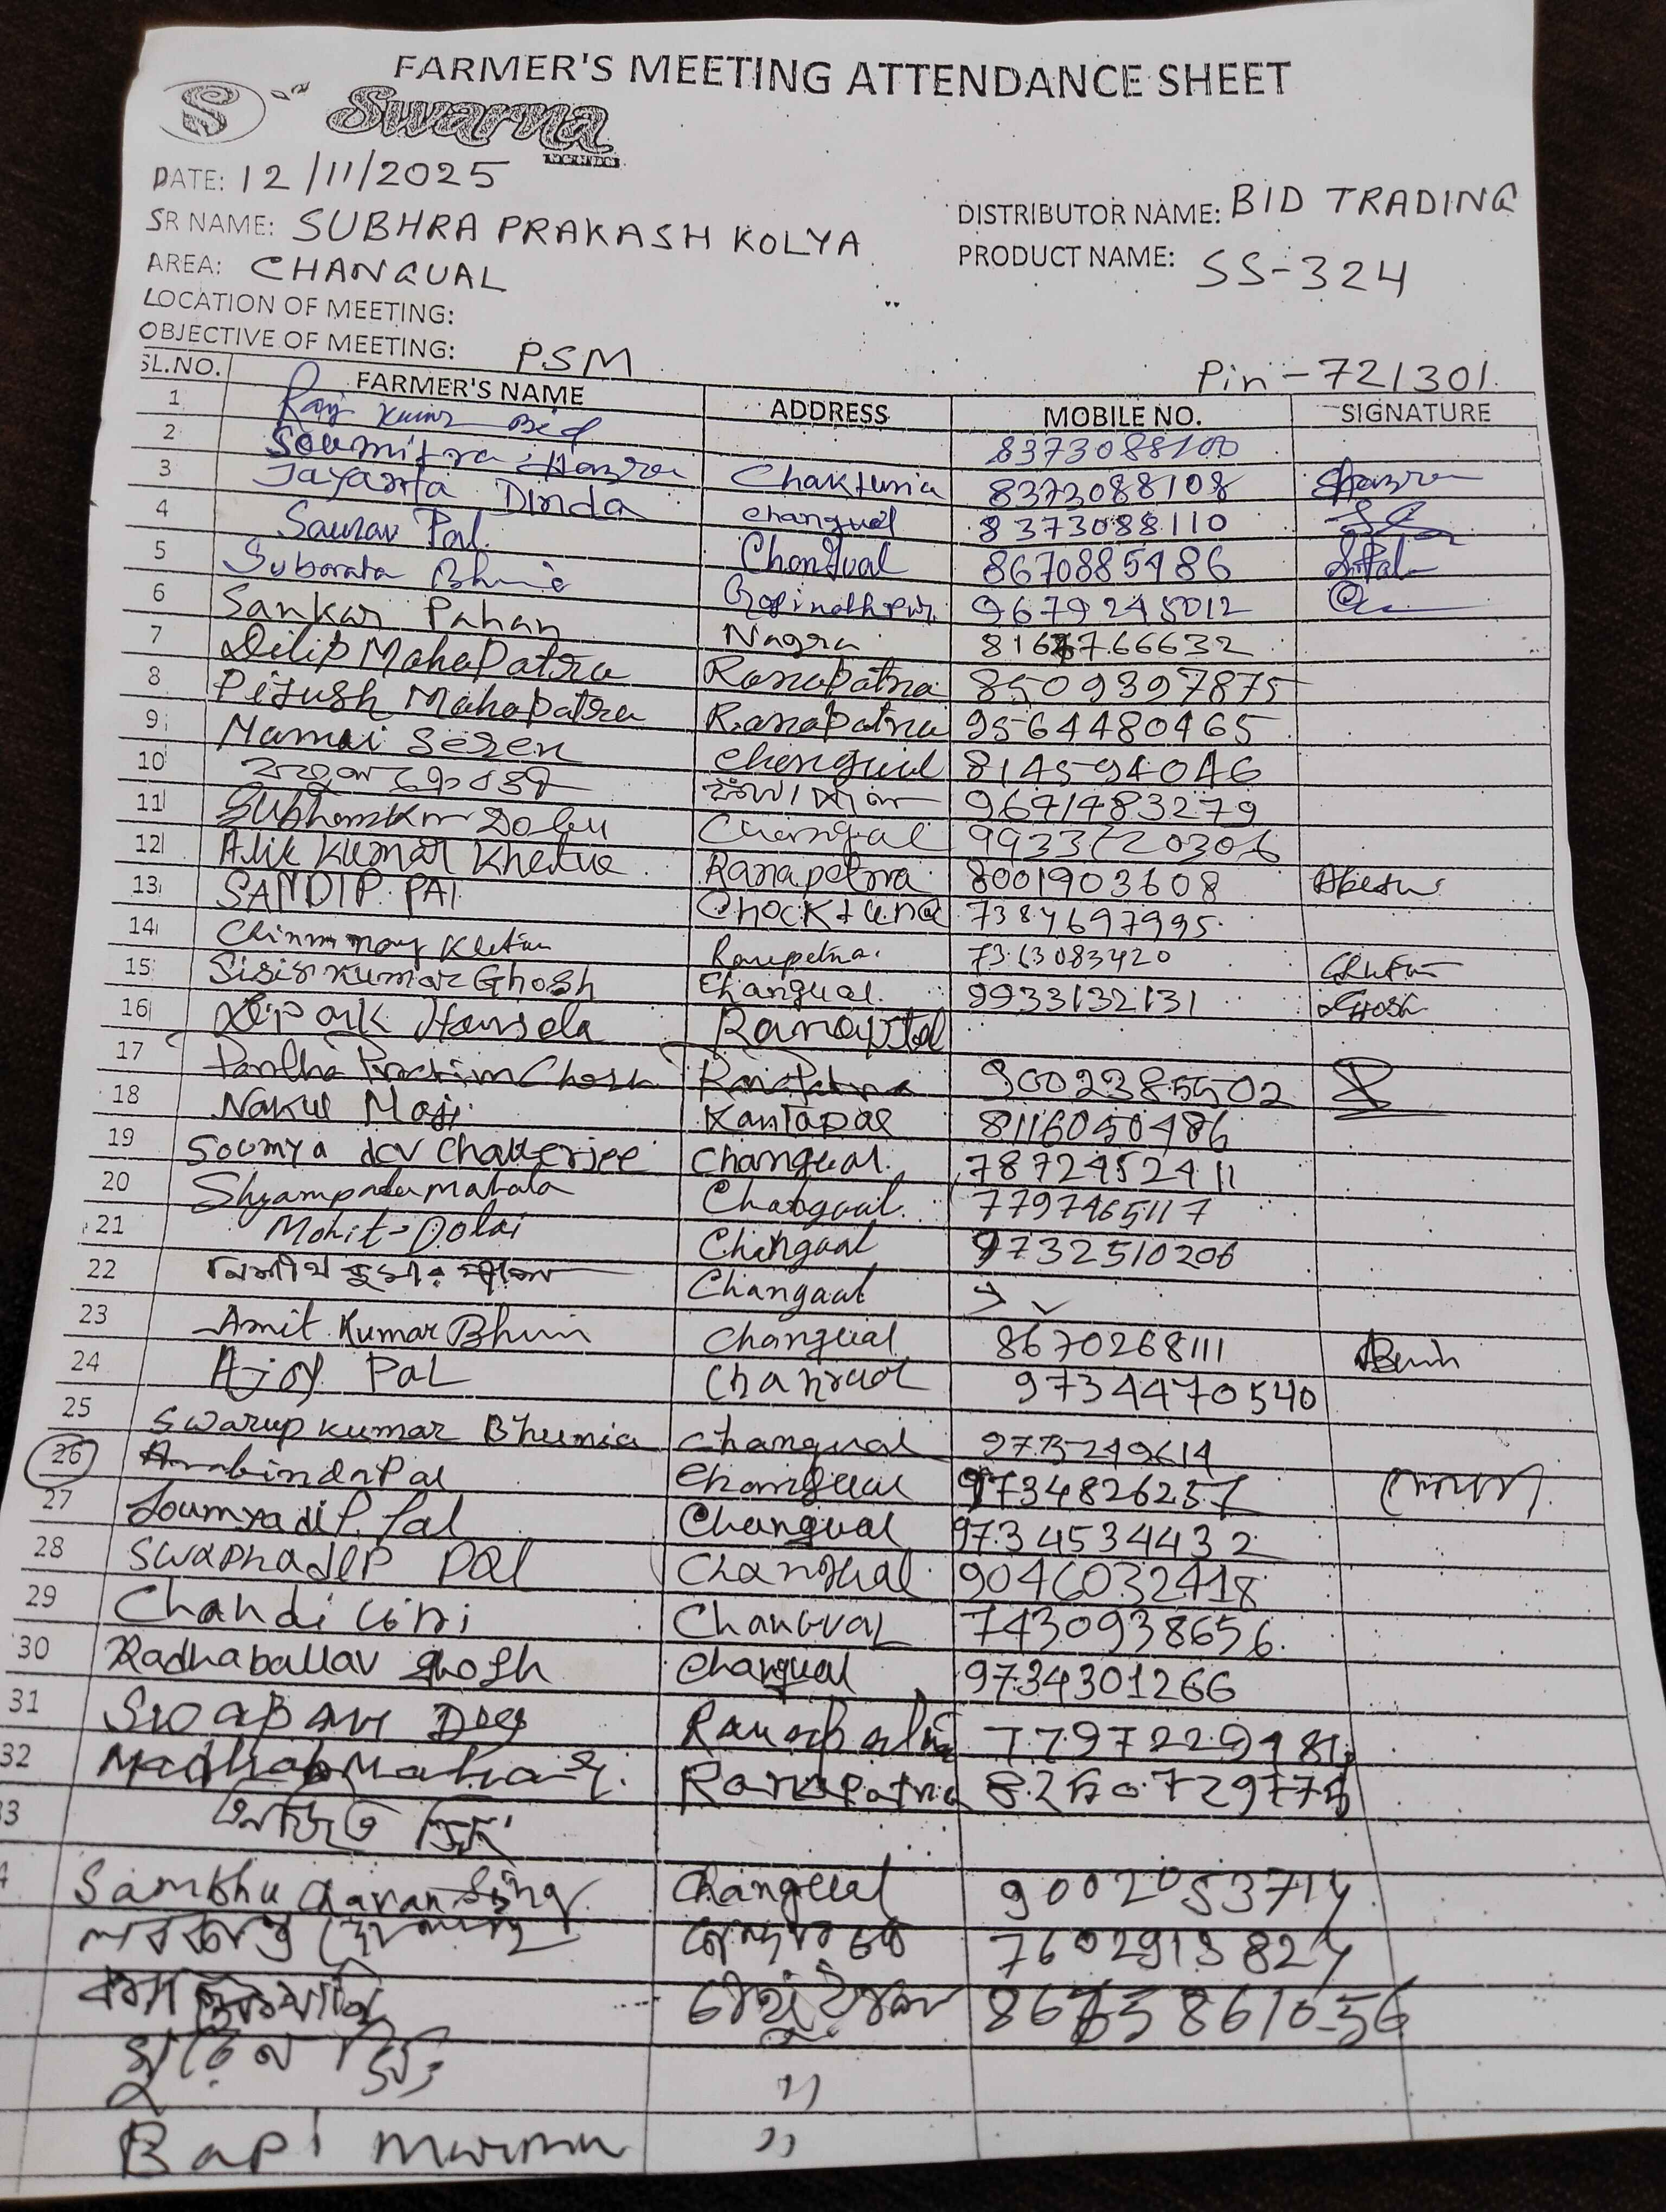 FARMER'S MEETING ATTENDANCE SHEET
S Swarna
DATE: 12/11/2025
DISTRIBUTOR NAME: BID TRADING
SR NAME: SUBHRA PRAKASH KOLYA
PRODUCT NAME: SS-324
AREA: CHANGUAL
LOCATION OF MEETING:
OBJECTIVE OF MEETING: PSM
Pin - 721301
SL.NO. FARMER'S NAME ADDRESS MOBILE NO. SIGNATURE
1 Raj Kumar Bid 8373088100
2 Soumitra Hazra Chakturia 8373088108
3 Jayanta Dinda Changual 8373088110
4 Saurav Pal Changual 8670885486 SPal
5 Subrata Bhunia Gopinathpur 9679245012
6 Sankar Pahan Nagra
7 Dilip Mahapatra Ranapatna 8509397875
8 Pijush Mahapatra Ranapatna 9564480465
9 Mamai Seren Changual 814594046
10 9641483279
11 Subhankar Dolui Changual
12 Alik Kumar Khatua Ranapatna 8001903608
13 SANDIP PAL Chocktuna 7384697995
14 Chinmmoy Khatua Ranapatna 7363083420
15 Sisir Kumar Ghosh Changual 9933132131 SGhosh
16 Dipak Hansda Ranapatna
17 Partha Pratim Ghosh Ranapatna 9002385502
18 Nakul Maji Kantapal 8116050486
19 Soumya dev Chakterjee Changual 7872452411
20 Shyampada Mahata Changual 7797465117
21 Mohit Dolai Changual 9732510206
22 Changual
23 Amit Kumar Bhuni Changual 8670268111
24 Ajoy Pal Changual 9734470540
25 Swarup Kumar Bhunia Changual 973249614
26 Arabinda Pal Changual 9734826257
27 Soumyadip Pal Changual 9734534432
28 Swapnadip Pal Changual 9046032418
29 Chandi Giri Changual 7430938656
30 Radhaballav Ghosh Changual 9734301266
31 Swapan Das Ranapatna
32 Madhab Ranapatna
33 অজিত
Sambhu Charan Sing Changual 9002053714
7602913824
"
Bapi Murmu "